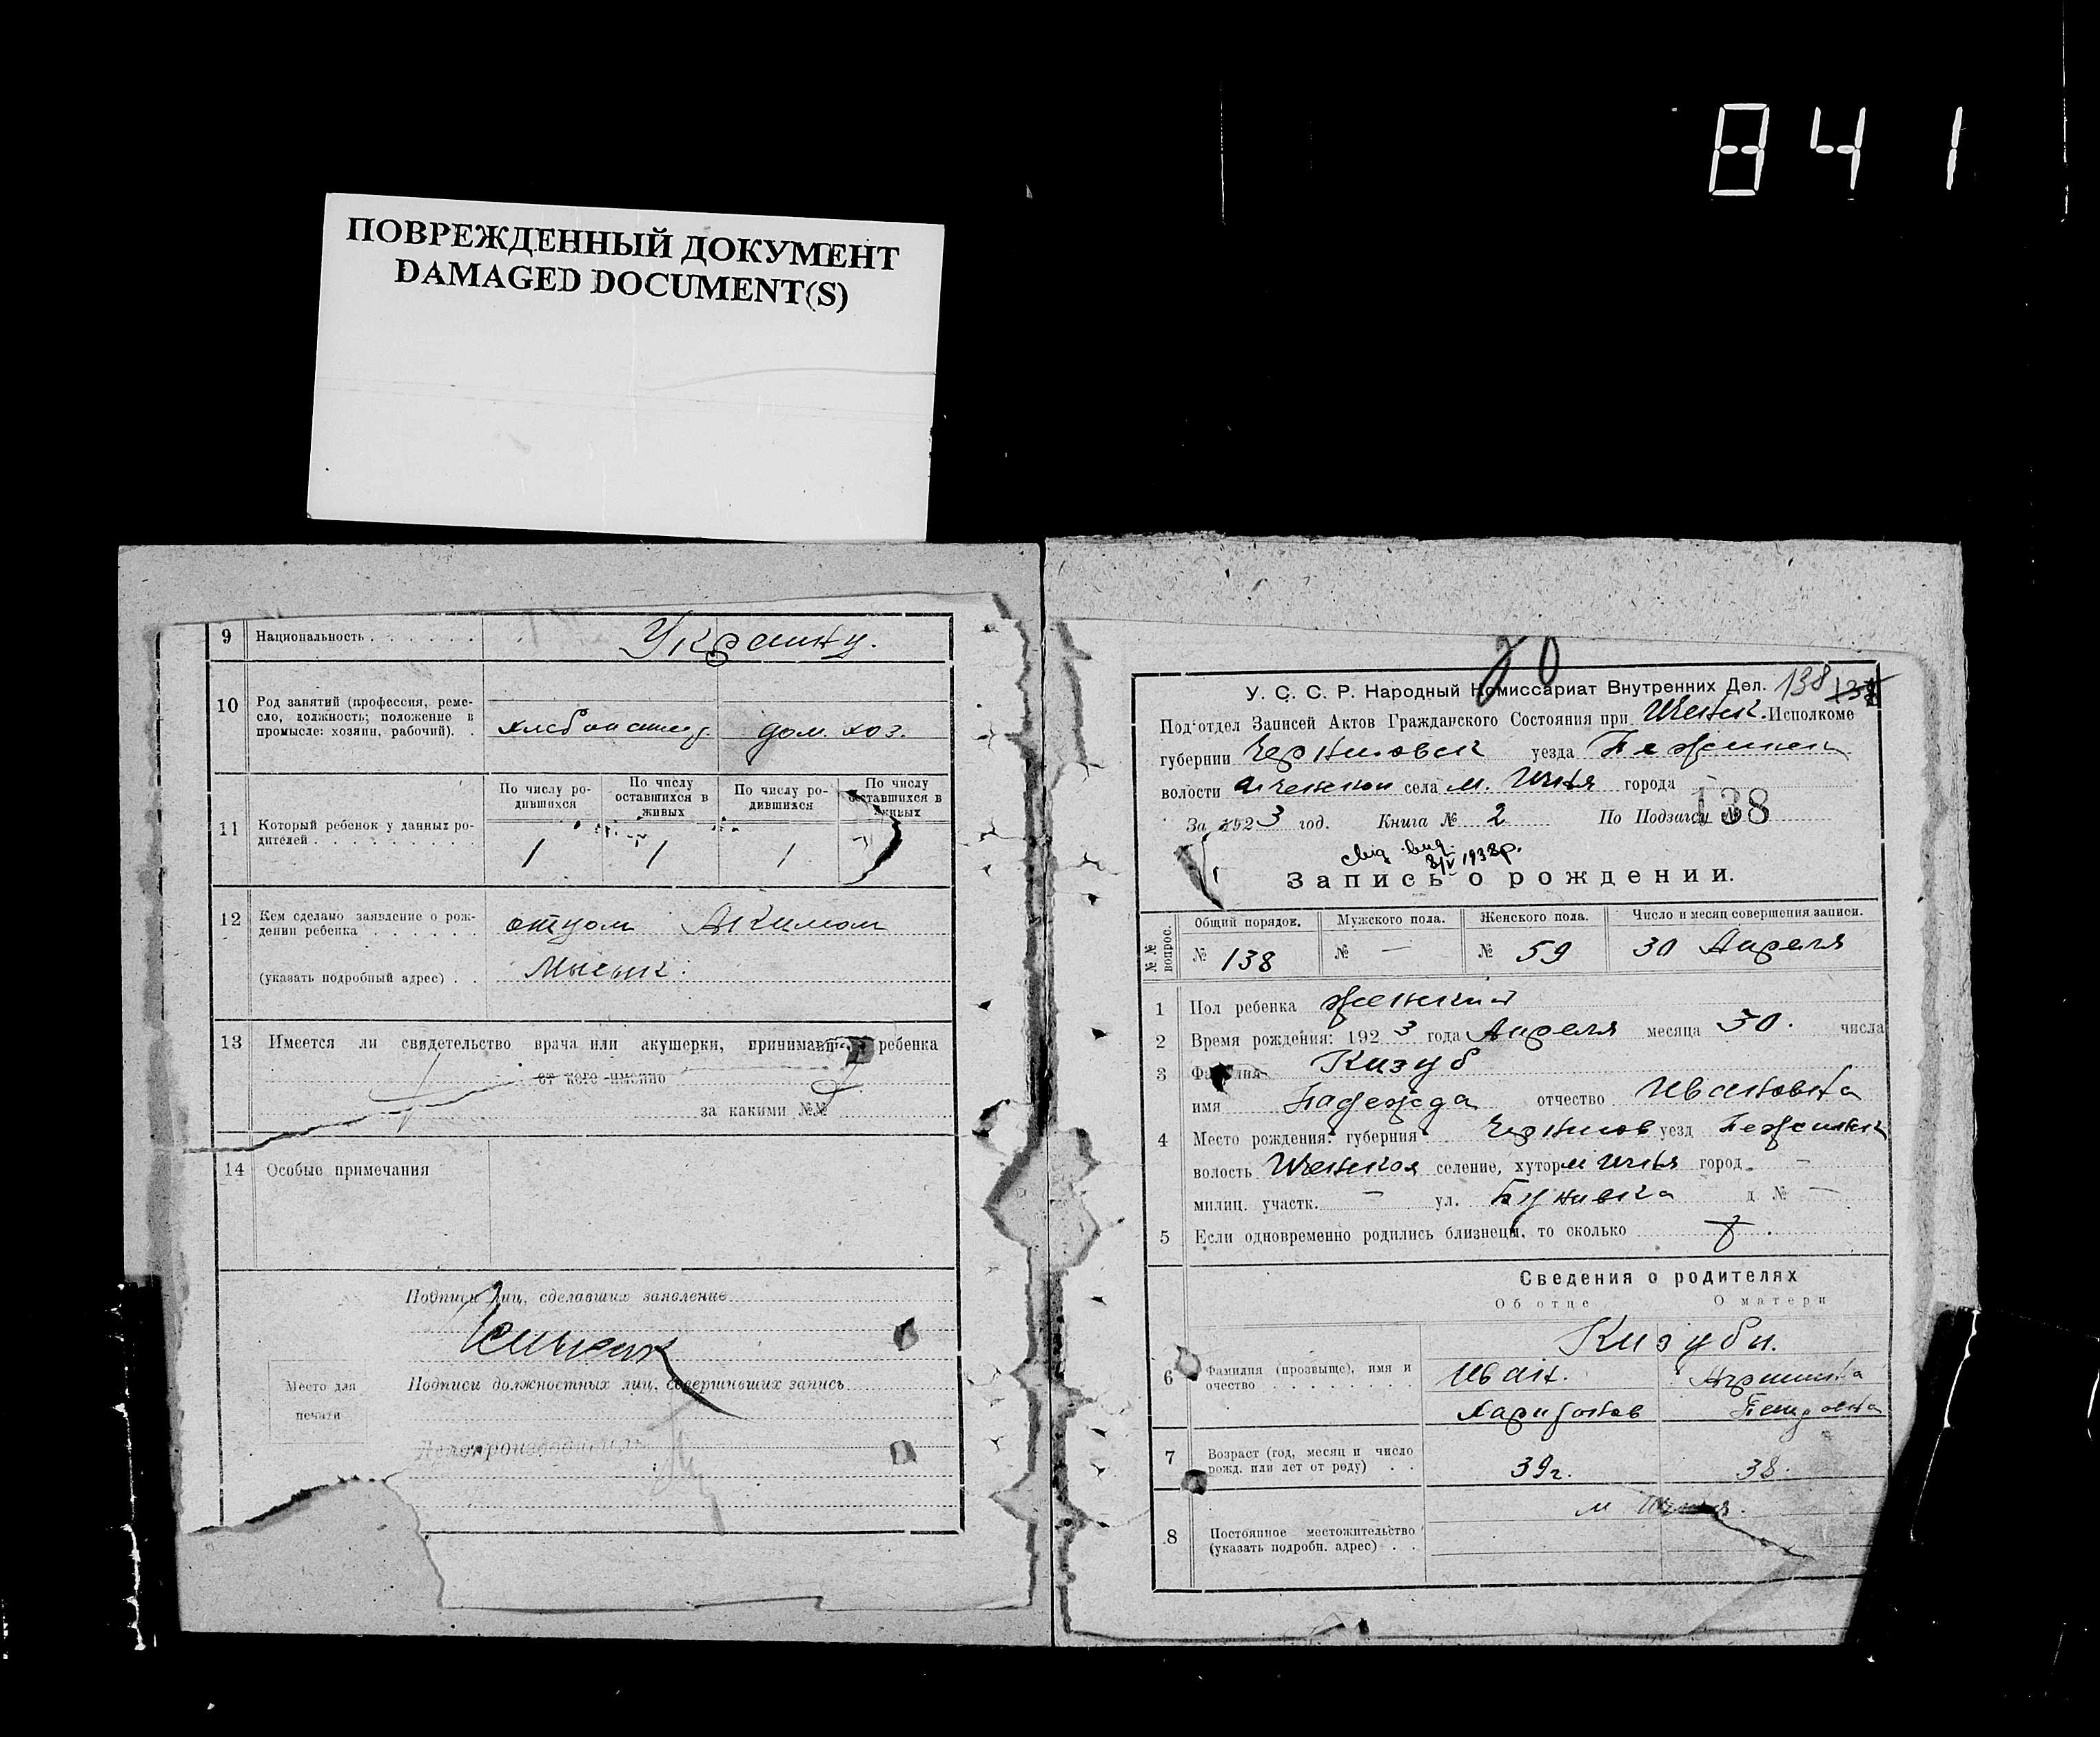 841
ПОВРЕЖДЕННЫЙ ДОКУМЕНТ
DAMAGED DOCUMENT(S)
9 Национальность Украинц.
10 Род занятий (профессия, реме-
сло, должность; положение в
промысле: хозяин, рабочий).
хлебопашец. дом. хоз.
11 Который ребенок у данных ро-
дителей
По числу ро-
дившихся
По числу
оставшихся в
живых
По числу ро-
дившихся
По числу
оставшихся в
живых
1 1 1
12 Кем сделано заявление о рож-
дении ребенка отцом Акимом
(указать подробный адрес)
13 Имеется ли свидетельство врача или акушерки, принимавш ребенка
от кого именно
за какими №№
14 Особые примечания
Подписи лиц, сделавших заявление
Подписи должностных лиц, совершивших запись
Место для
печати
Делопроизводитель
20
У. С. С. Р. Народный Комиссариат Внутренних Дел. 138
Под'отдел Записей Актов Гражданского Состояния при Ичнск. Исполкоме
губернии Черниговск уезда Нежинск
волости Ичнской села м. Ичня города
138
За 1923 год. Книга № 2 По Подзагсу №
8/V 1938р.
Запись о рождении.
№№ вопрос.
Общий порядок. Мужского пола. Женского пола. Число и месяц совершения записи.
№ 138 № — № 59 30 Апреля
1 Пол ребенка женский
2 Время рождения: 1923 года Апреля месяца 30. числа
3 Фамилия Кизуб
имя Надежда отчество Ивановна
4 Место рождения: губерния Чернигов уезд Нежинск
волость Ичнская селение, хутор м Ичня город —
милиц. участк. — ул. Бужывка д № —
5 Если одновременно родились близнецы, то сколько
Сведения о родителях
Об отце О матери
6 Фамилия (прозвыще), имя и
очество
Кизубы.
Иван.
Харитонов
7 Возраст (год, месяц и число
рожд. или лет от роду)
39г. 38.
8 Постоянное местожительство
(указать подробн. адрес)
м Ичня.